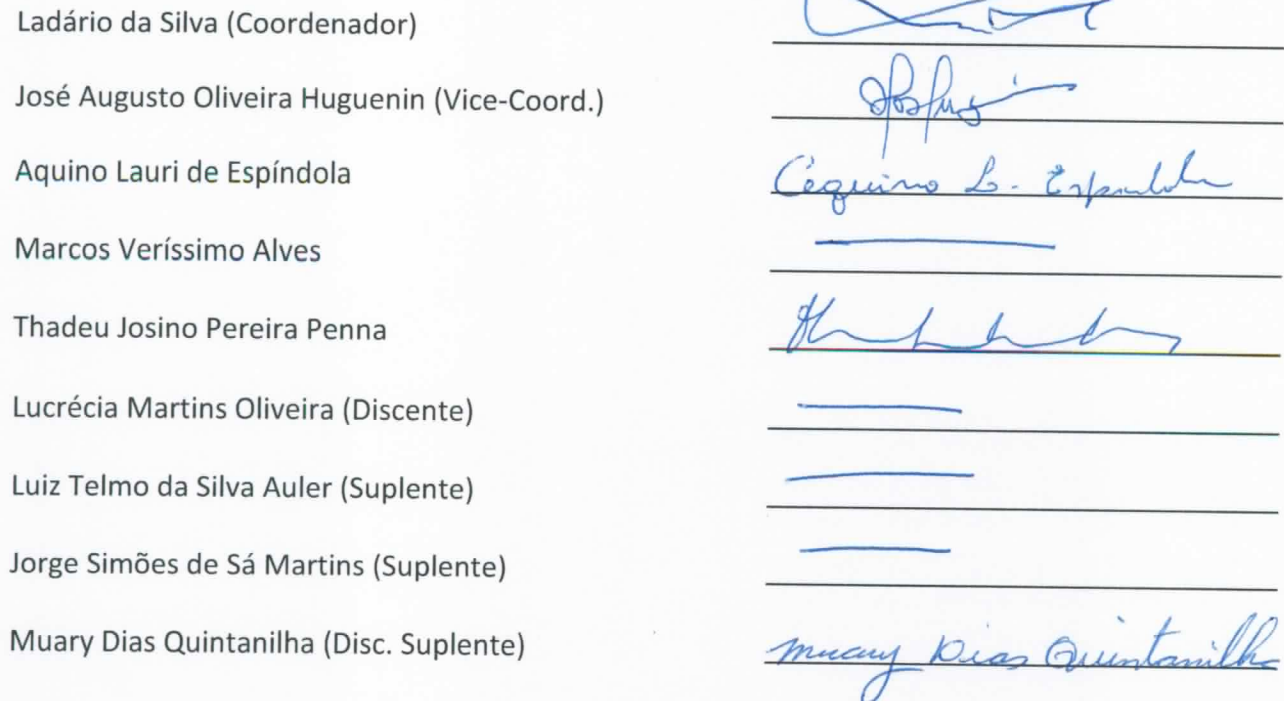 Ladário da Silva (Coordenador)
José Augusto Oliveira Huguenin (Vice-Coord.)
Aquino Lauri de Espíndola Aquino L. Espíndola
Marcos Veríssimo Alves
Thadeu Josino Pereira Penna
Lucrécia Martins Oliveira (Discente)
Luiz Telmo da Silva Auler (Suplente)
Jorge Simões de Sá Martins (Suplente)
Muary Dias Quintanilha (Disc. Suplente) Muary Dias Quintanilha